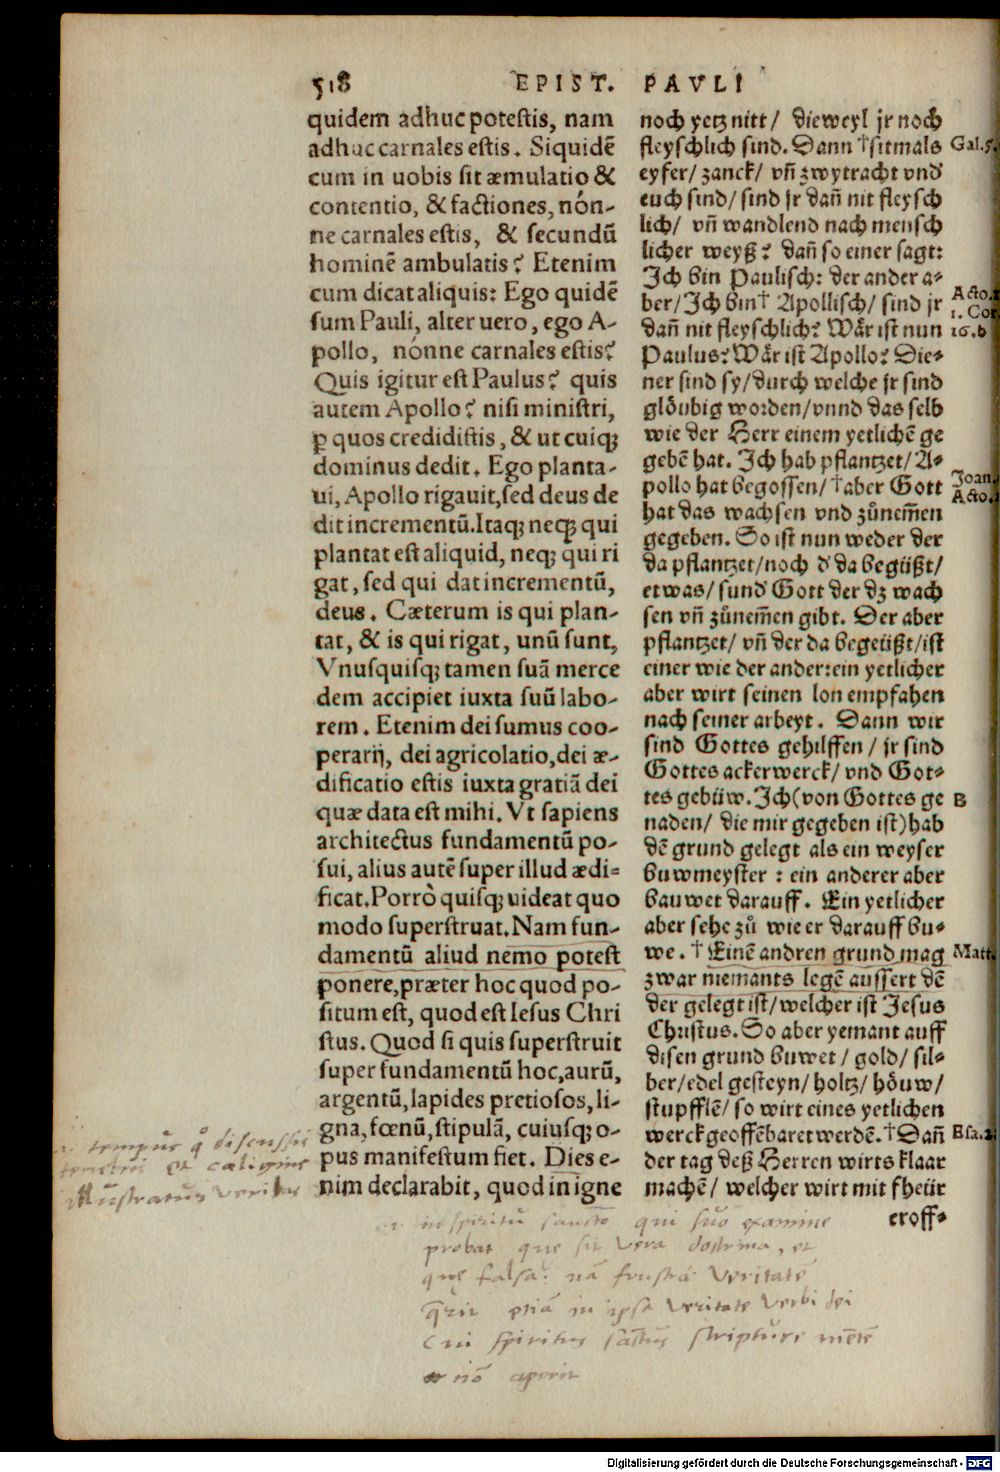 518 EPIST. PAVLI
quidem adhuc potestis, nam
adhuc carnales estis. Siquidē
cum in uobis sit æmulatio &
contentio, & factiones, nón-
ne carnales estis, & secundū
hominē ambulatis? Etenim
cum dicat aliquis: Ego quidē
sum Pauli, alter uero, ego A-
pollo, nónne carnales estis?
Quis igitur est Paulus? quis
autem Apollo? nisi ministri,
ꝑ quos credidistis, & ut cuiqꝫ
dominus dedit. Ego planta-
ui, Apollo rigauit, sed deus de
dit incrementū. Itaqꝫ neqꝫ qui
plantat est aliquid, neqꝫ qui ri
gat, sed qui dat incrementū,
deus. Cæterum is qui plan-
tat, & is qui rigat, unū sunt,
Vnusquisqꝫ tamen suā merce
dem accipiet iuxta suū labo-
rem. Etenim dei sumus coo-
perarij, dei agricolatio, dei æ-
dificatio estis iuxta gratiā dei
quæ data est mihi. Vt sapiens
architectus fundamentū po-
sui, alius autē super illud ædi=
ficat. Porrò quisqꝫ uideat quo
modo superstruat. Nam fun-
damentū aliud nemo potest
ponere, præter hoc quod po-
situm est, quod est Iesus Chri
stus. Quod si quis superstruit
super fundamentū hoc, aurū,
argentū, lapides pretiosos, li-
gna, fœnū, stipulā, cuiusqꝫ o-
pus manifestum fiet. Dies e-
nim declarabit, quod in igne
noch yetz nitt/ dieweyl jr noch
fleyschlich sind. Dann †sitmals
eyfer/ zanck/ vñ zwytracht vnd
euch sind/ sind jr dañ nit fleysch
lich/ vñ wandlend nach mensch
licher weyß? dañ so einer sagt:
Ich bin Paulisch: der ander a=
ber/ Ich bin† Apollisch/ sind jr
dañ nit fleyschlich? Wår ist nun
Paulus? Wår ist Apollo? Die=
ner sind sy/ durch welche jr sind
glöubig worden/ vnnd das selb
wie der Herr einem yetlichē ge
gebē hat. Ich hab pflantzet/ A=
pollo hat begossen/ †aber Gott
hat das wachsen vnd zůnem̃en
gegeben. So ist nun weder der
da pflantzet/ noch d' da begüßt/
etwas/ sund' Gott der dz wach
sen vñ zůnem̃en gibt. Der aber
pflantzet/ vñ der da begeüßt/ ist
einer wie der ander: ein yetlicher
aber wirt seinen lon empfahen
nach seiner arbeyt. Dann wir
sind Gottes gehilffen/ jr sind
Gottes ackerwerck/ vnd Got=
tes gebüw. Ich (von Gottes ge
naden/ die mir gegeben ist) hab
dē grund gelegt als ein weyser
buwmeyster: ein anderer aber
bauwet darauff. Ein yetlicher
aber sehe zů wie er darauff bu=
we. † Einē andren grund mag
zwar niemants legē aussert dē
der gelegt ist/ welcher ist Jesus
Christus. So aber yemant auff
disen grund buwet/ gold/ sil=
ber/ edel gesteyn/ holtz/ höuw/
stupfflē/ so wirt eines yetlichen
werck geoffēbaret werdē. †Dañ
der tag deß Herren wirts klaar
machē/ welcher wirt mit fheür
eroff=
Gal.5.
Acto.
1. Cor.
16.b
Joan.
Acto.
B
Matt.
Esa.2
tempus q̃ discussis
tenebris et caligine
illustratur veritas
in spiritu sancto qui suo examine
probat que sit vera doctrina, et
que falsa: nā frustra veritatē
q̃rit etiā in ipsa veritate verbi dei
cui spiritus sanctus scripture mētē
nō aperit
Digitalisierung gefördert durch die Deutsche Forschungsgemeinschaft - DFG